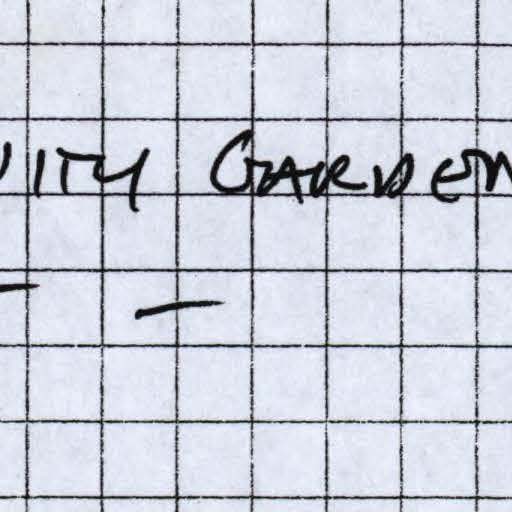 NITY GARDEN
— —